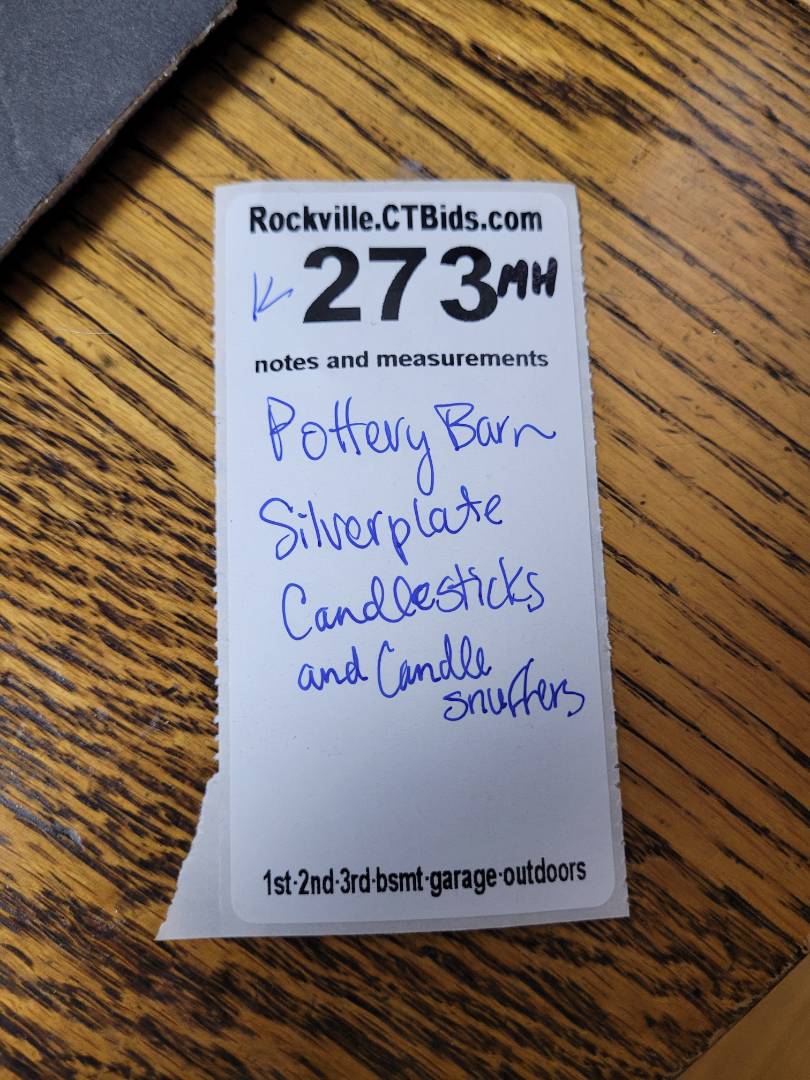 Rockville.CTBids.com
273 MH
notes and measurements
Pottery Barn
Silverplate
Candlesticks
and Candle
snuffers
1st-2nd-3rd-bsmt-garage-outdoors